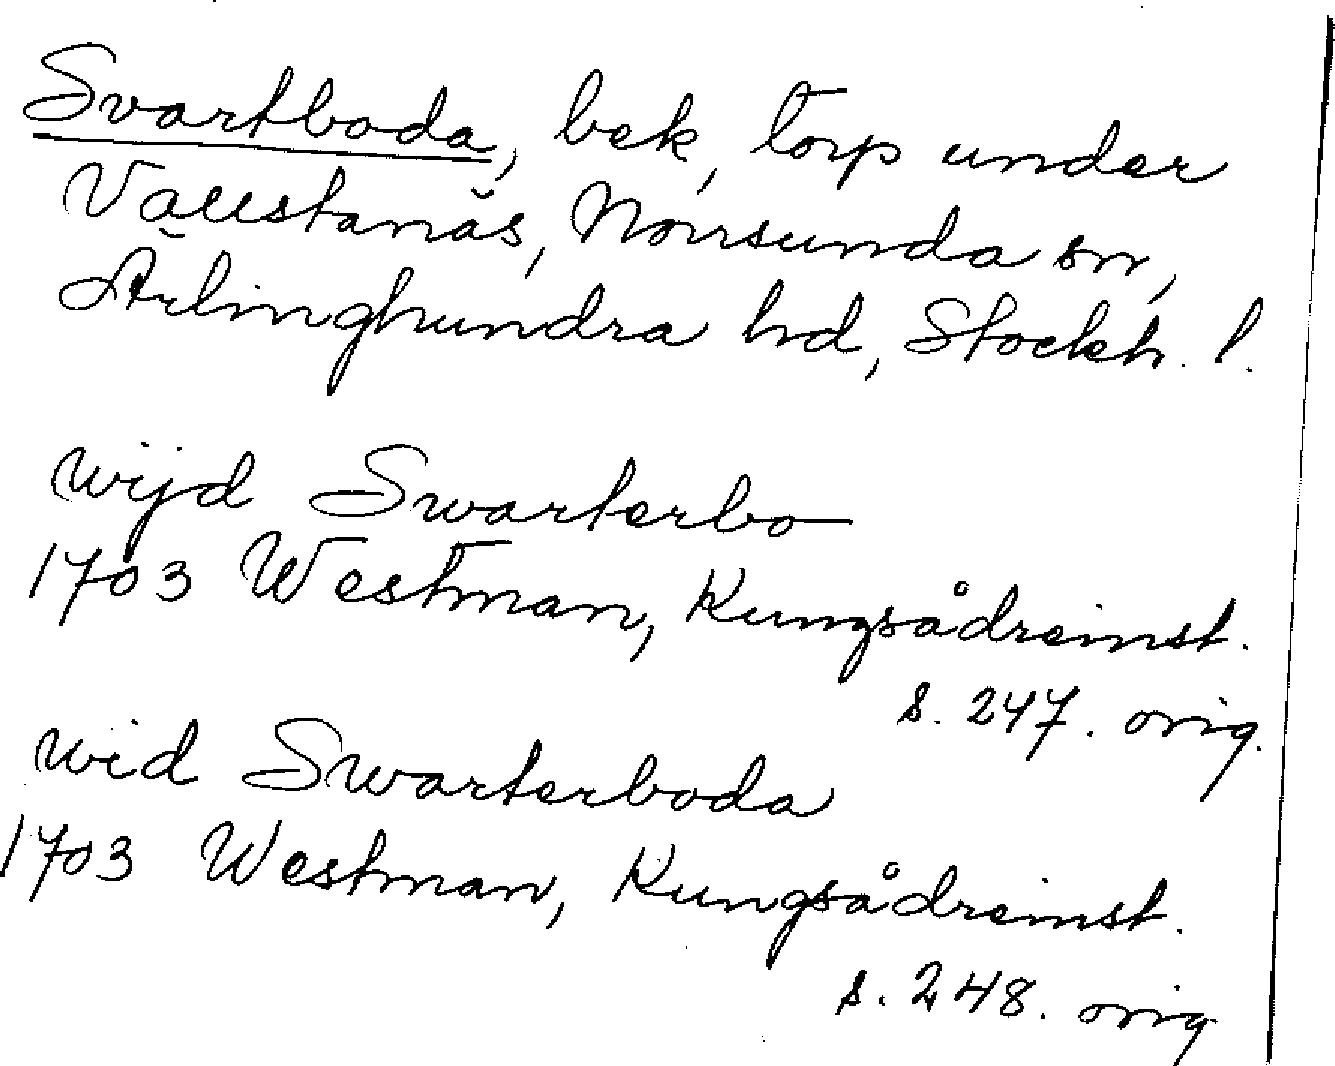 Svartboda, bek, torp under
Vallstanäs, Norrsunda sn,
Ärlinghundra hd, Stockh. l.
wijd Swarterbo
1703 Westman, Kungsådreinst.
s. 247. orig.
wid Swarterboda
1703 Westman, Kungsådreinst.
s. 248. orig